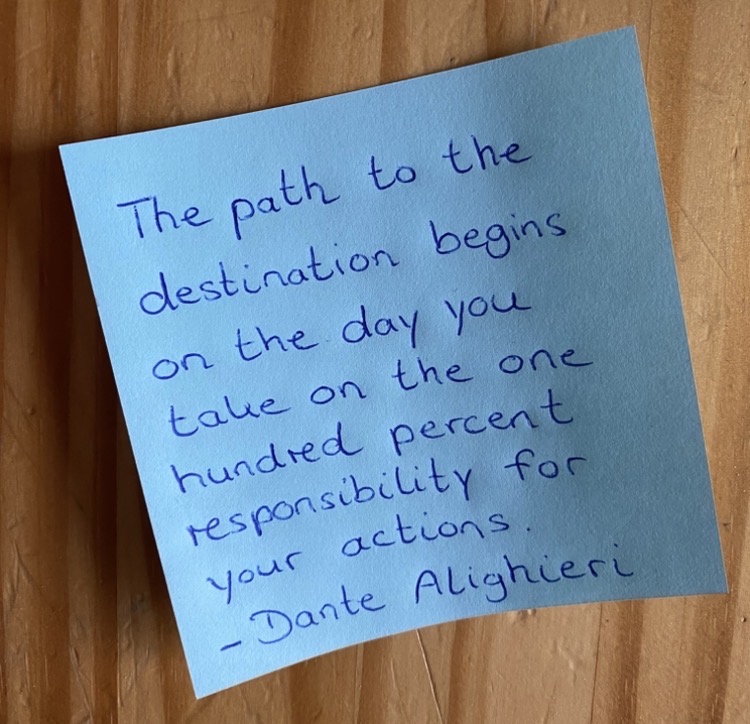 The path to the
destination begins
on the day you
take on the one
hundred percent
responsibility for
your actions.
- Dante Alighieri